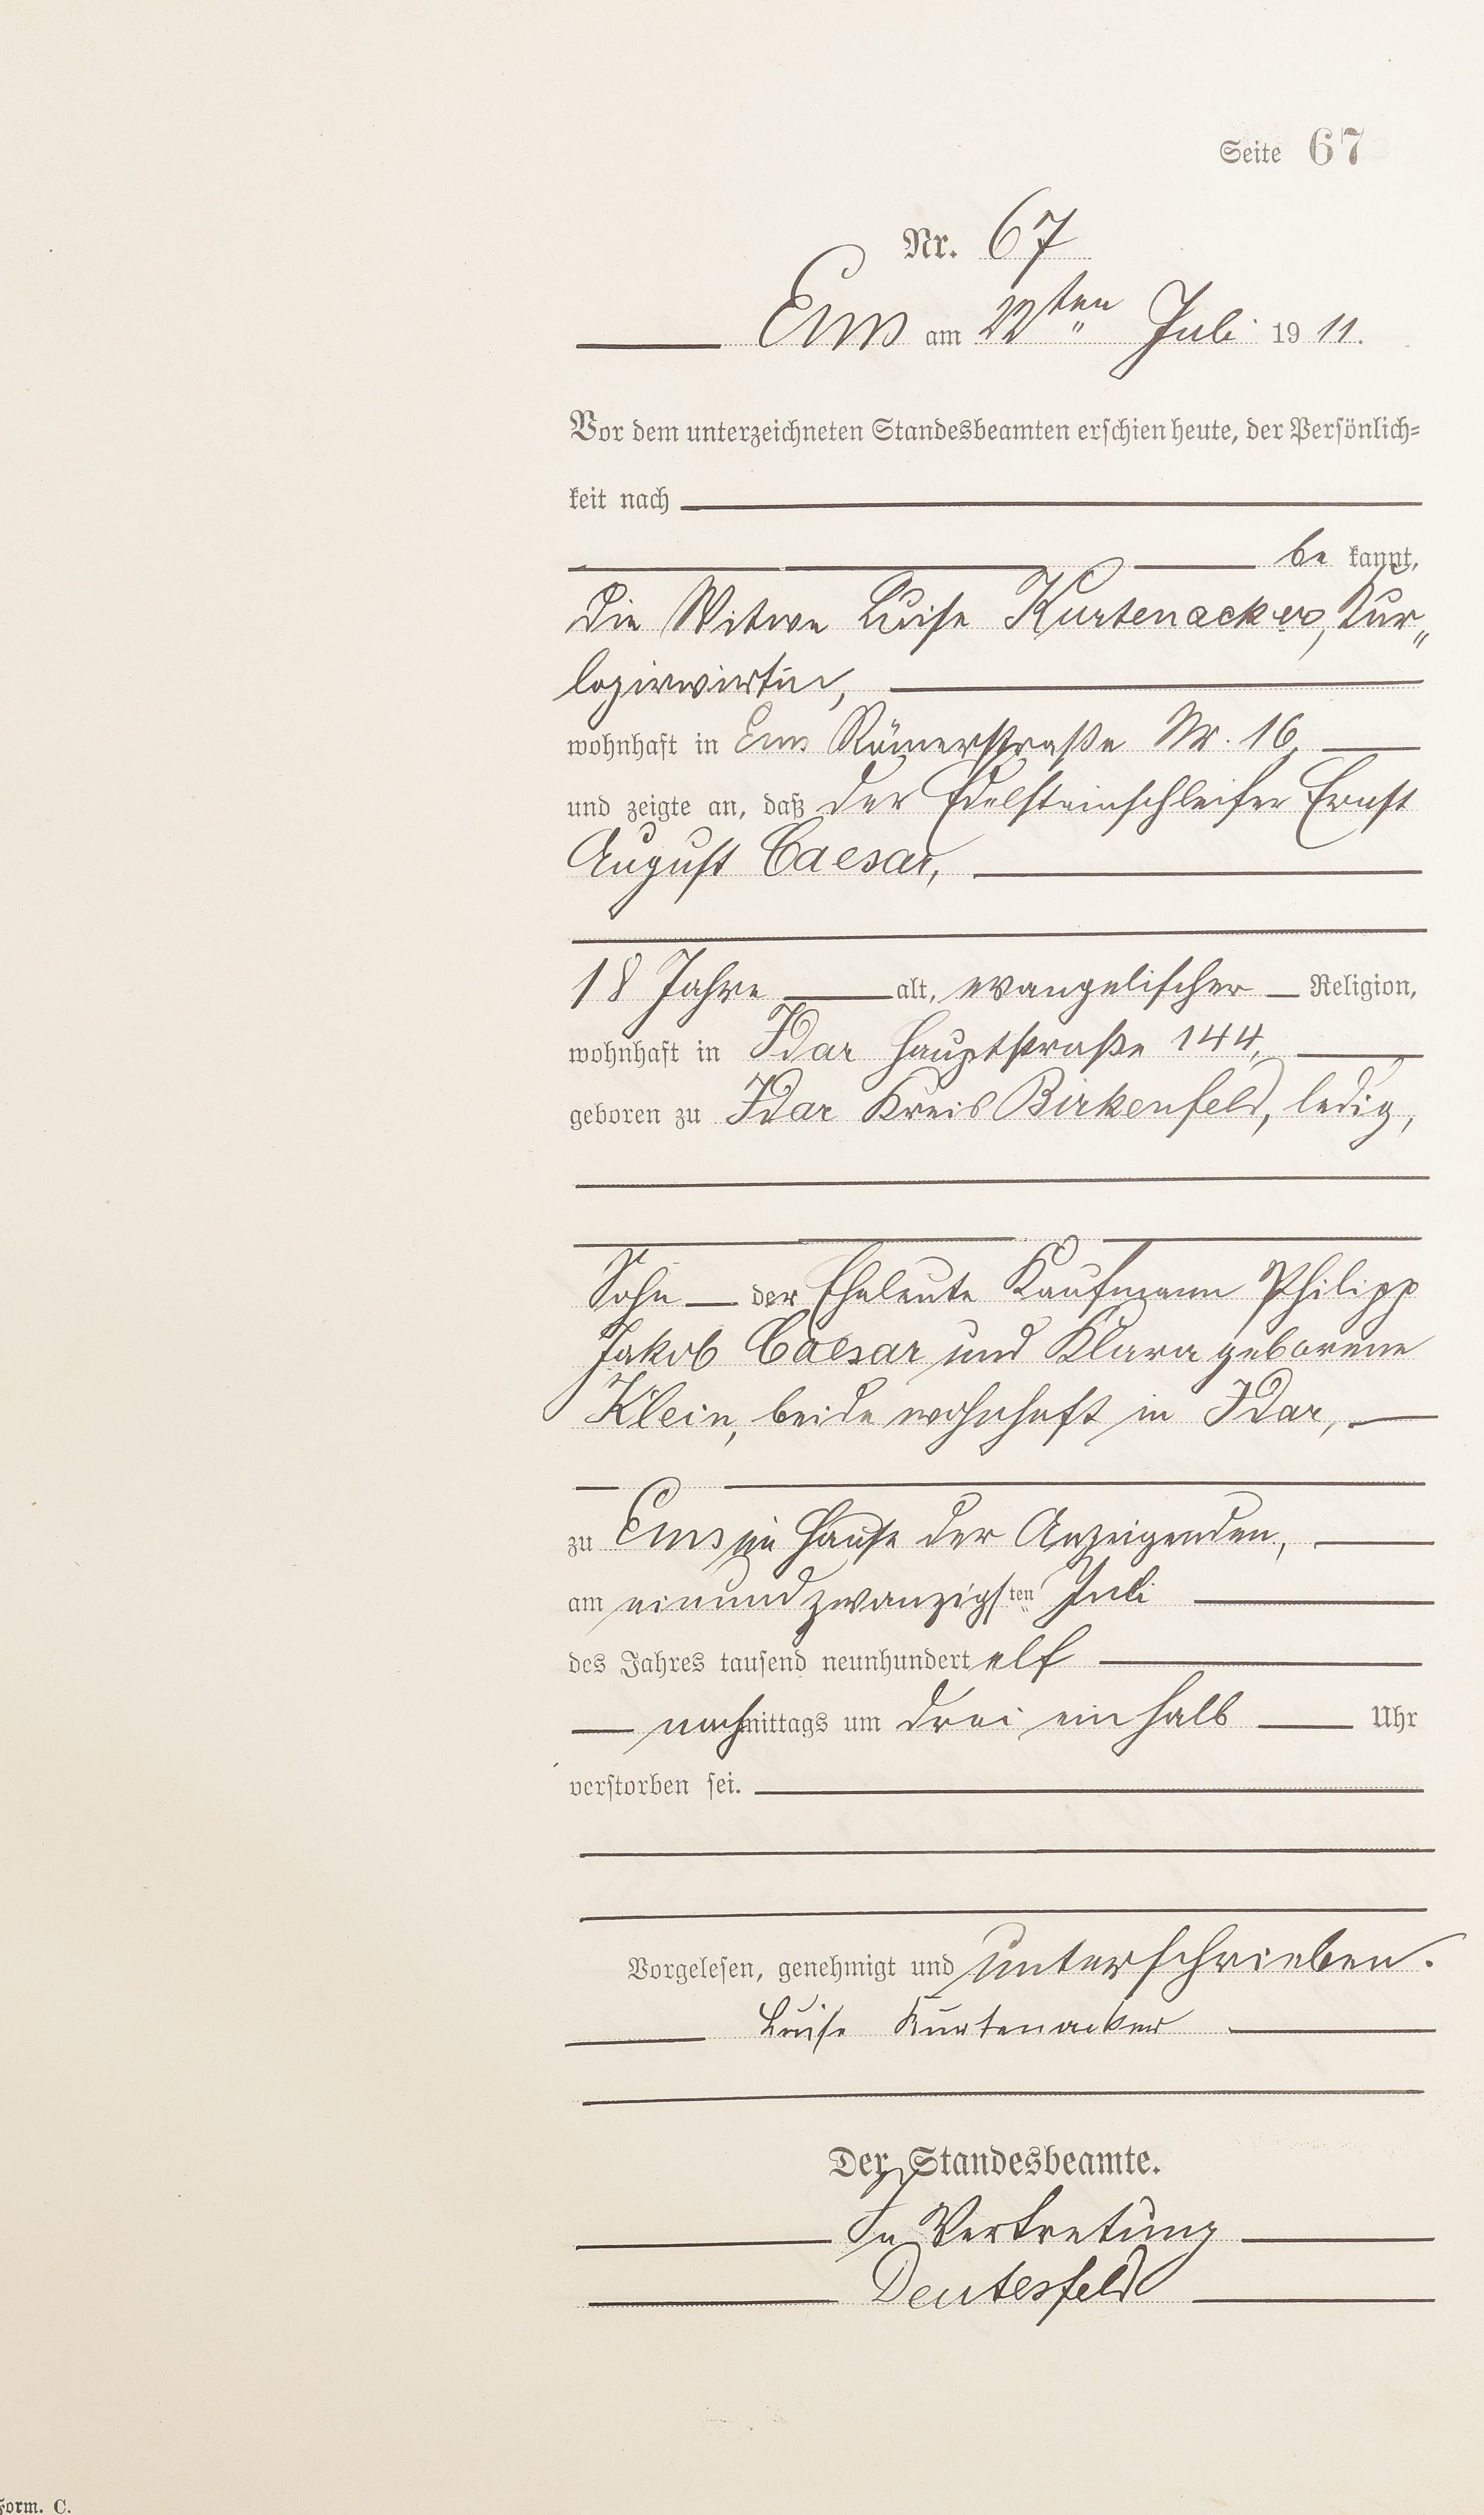 Seite 67
Nr. 67
Ems am 22ten Juli 1911.
Vor dem unterzeichneten Standesbeamten erschien heute, der Persönlich-
keit nach
be kannt,
die Witwe Luise Kurtenacker, Kur„
logirwirtin,
wohnhaft in Ems Römerstraße Nr. 16,
und zeigte an, daß der Edelsteinschleifer Ernst
August Caesar,
18 Jahre alt, evangelischer Religion,
wohnhaft in Idar Hauptstraße 144,
geboren zu Idar Kreis Birkenfeld, ledig,
Sohn der Eheleute Kaufmann Philipp
Jakob Caesar und Klara geborene
Klein, beide wohnhaft in Idar,
zu Ems im Hause der Anzeigenden,
am einundzwanzigsten Juli
des Jahres tausend neunhundert elf
nachmittags um drei einhalb Uhr
verstorben sei.
Vorgelesen, genehmigt und unterschrieben.
Luise Kurtenacker
Der Standesbeamte.
In Vertretung
Deutesfeld
Form. C.